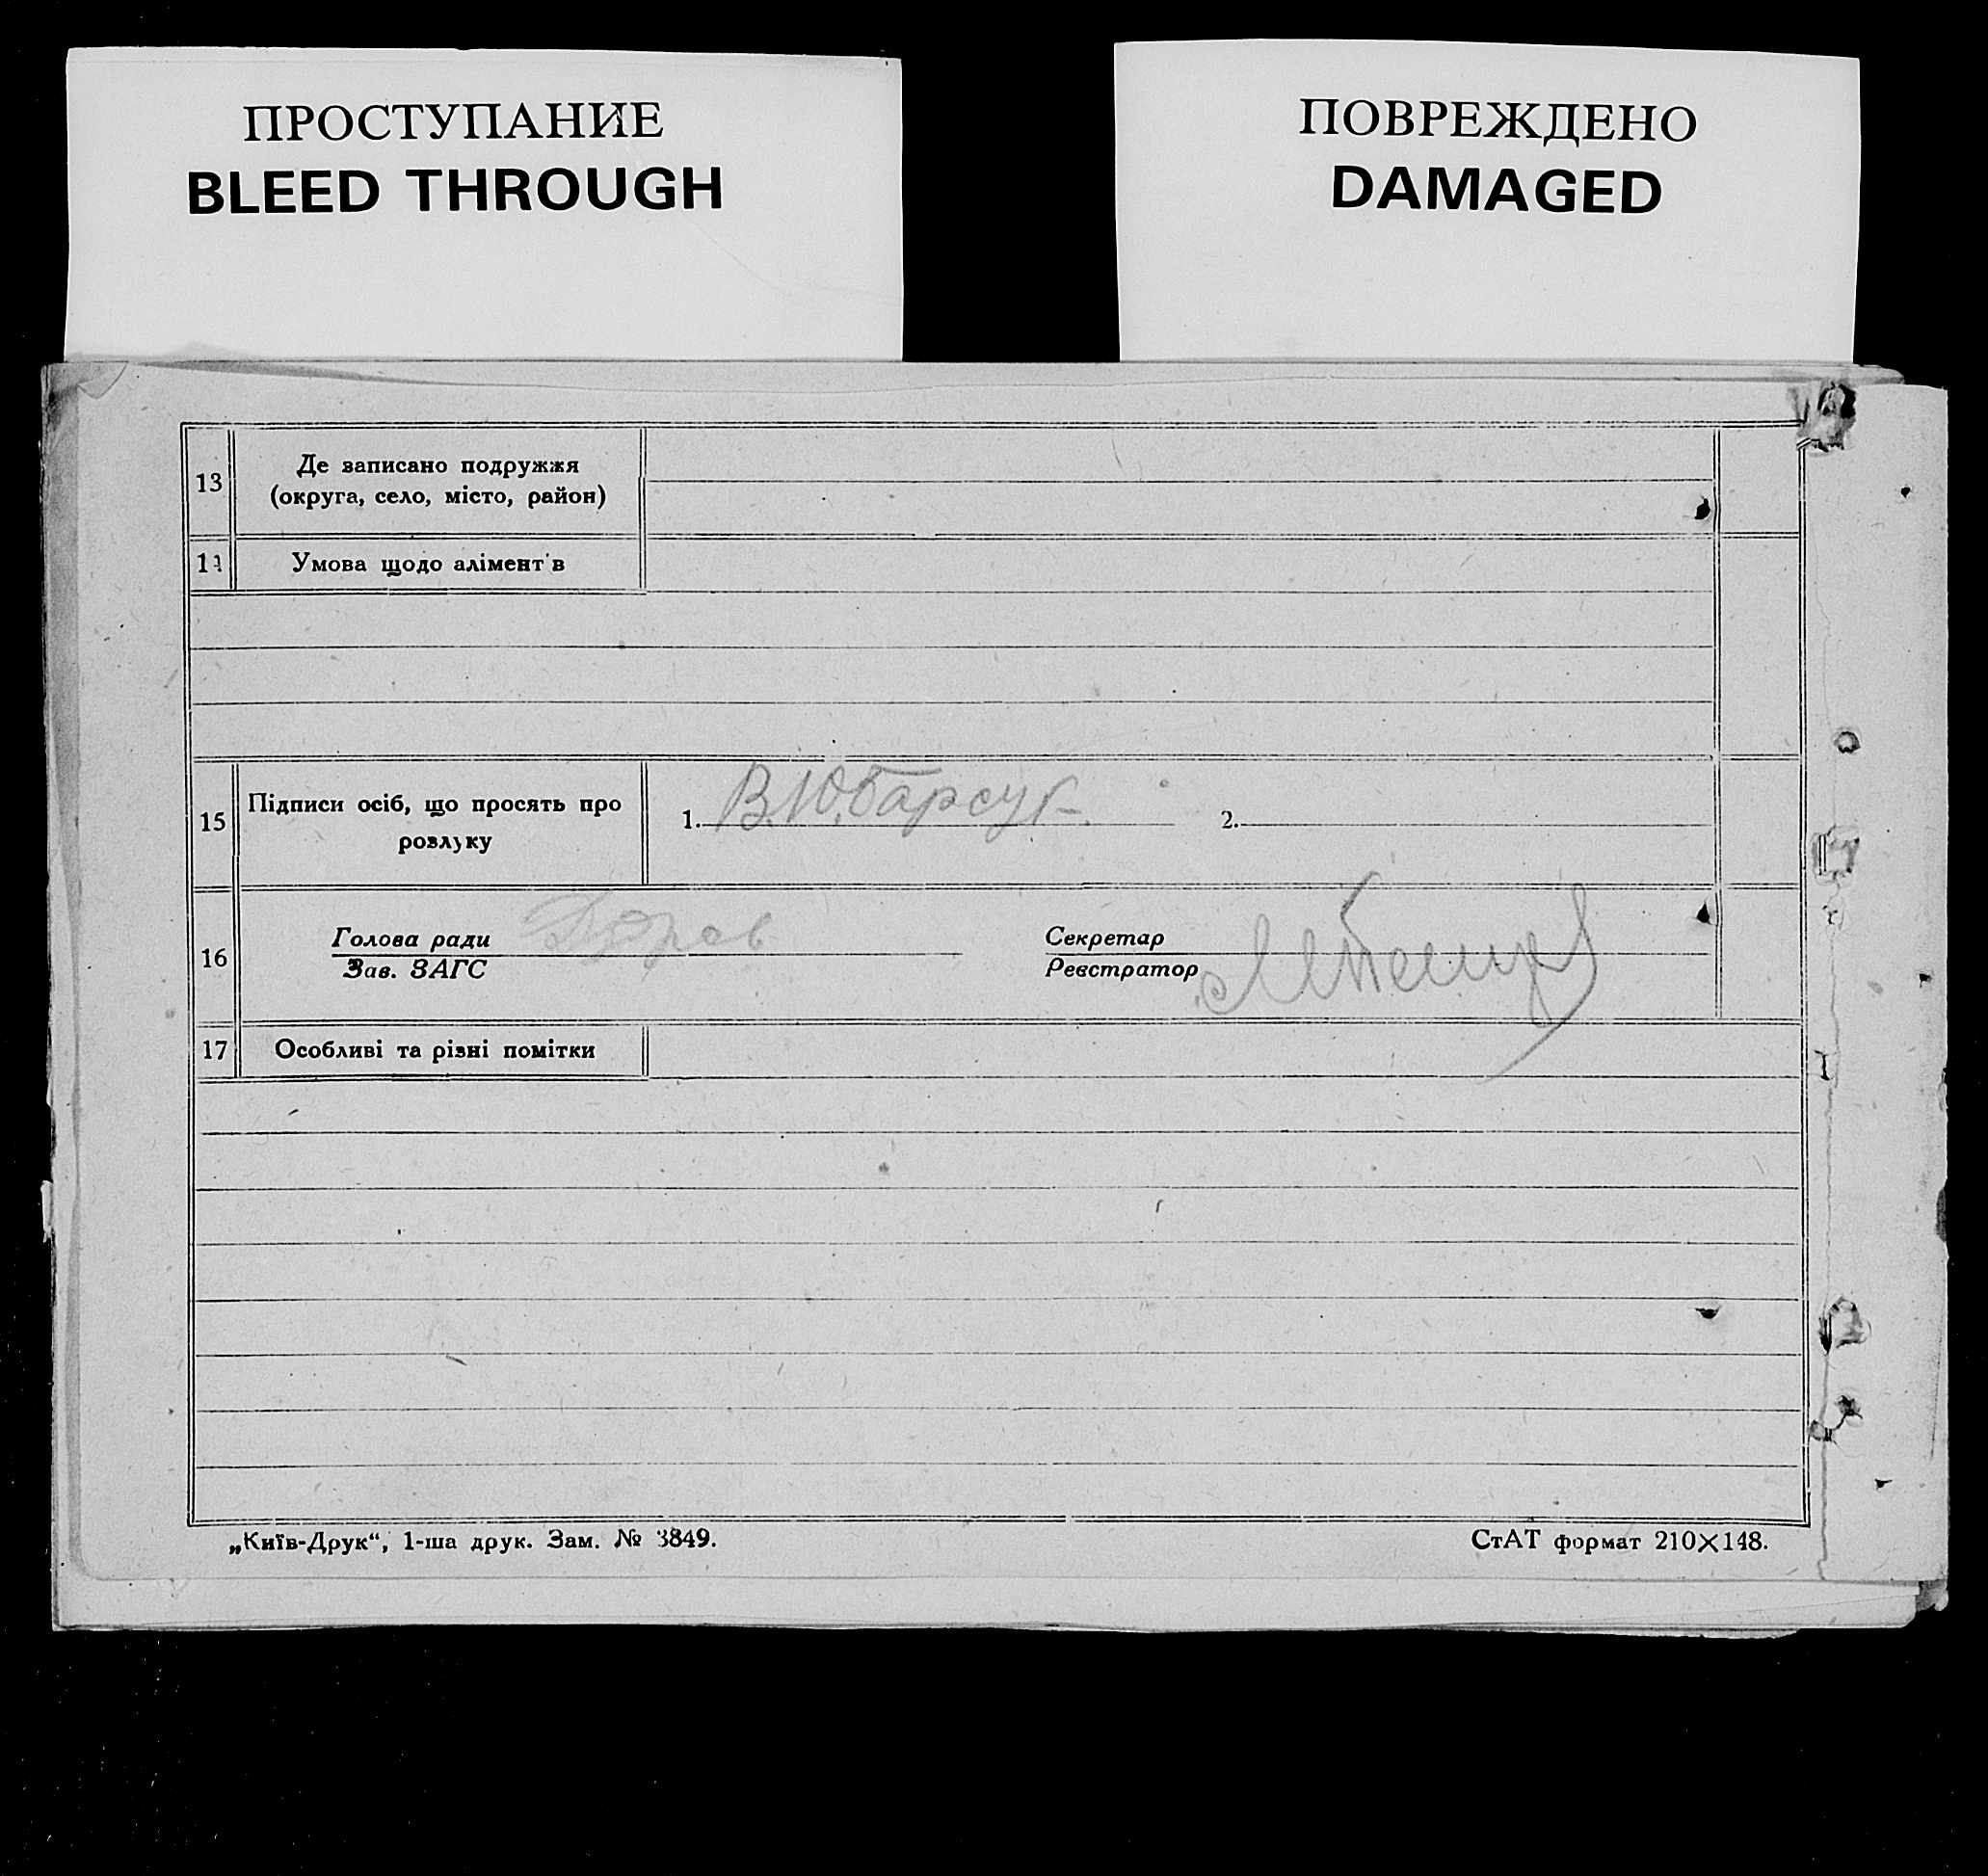 ПРОСТУПАНИЕ
BLEED THROUGH
ПОВРЕЖДЕНО
DAMAGED
13
Де записано подружжя
(округа, село, місто, район)
14
Умова щодо алімент в
15
Підписи осіб, що просять про
розлуку
1. В.Ю.Барсук.
2.
16
Голова ради
Зав. ЗАГС
Секретар
Реєстратор
17
Особливі та різні помітки
„Київ-Друк“, 1-ша друк. Зам. № 3849.
СтАТ формат 210×148.